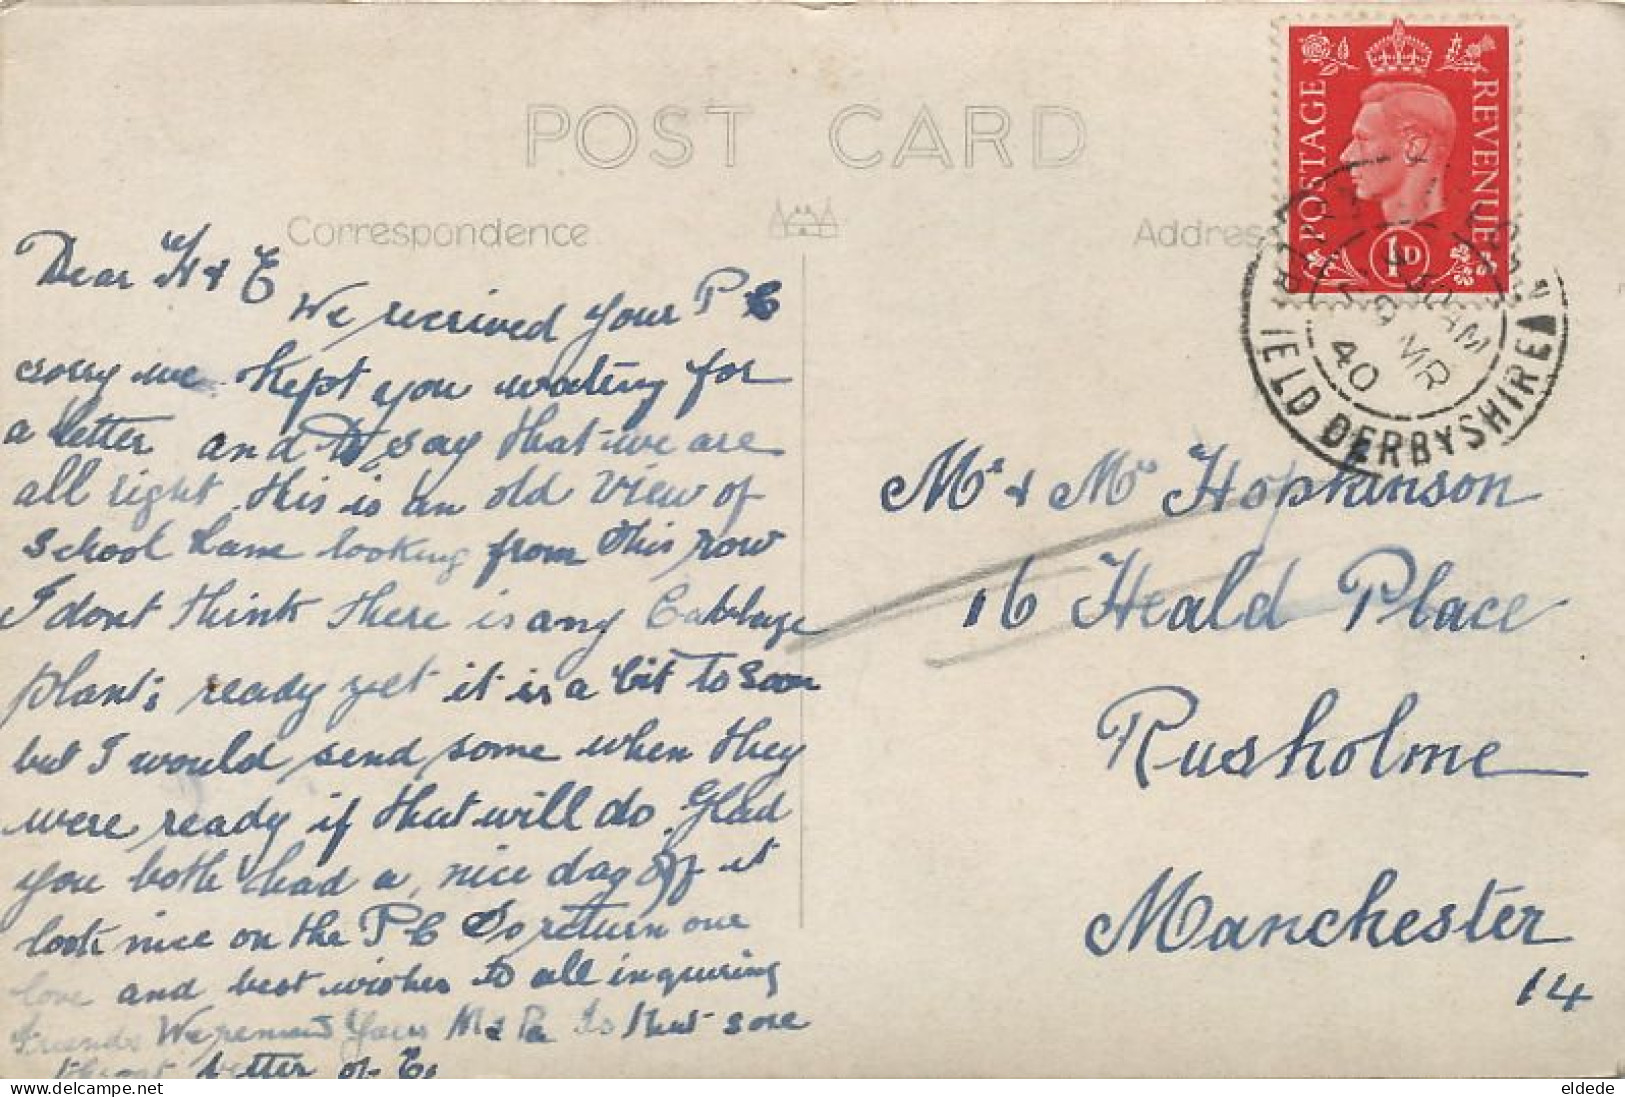 POST CARD
Correspondence
Address
POSTAGE
REVENUE
1D
AM
MR
40
IELD DERBYSHIRE
Dear H & E
We received your P C
sorry we kept you waiting for
a letter and to say that we are
all right this is an old view of
School Lane looking from this row
I dont think there is any Cabbage
plants ready yet it is a bit to soon
but I would send some when they
were ready if that will do. Glad
you both had a nice day of it
look nice on the P C So return our
love and best wishes to all inquiring
Friends We remain Yours M & Pa Is that sore
throat better of Es
Mr & Mrs Hopkinson
16 Heald Place
Rusholme
Manchester
14
eldede